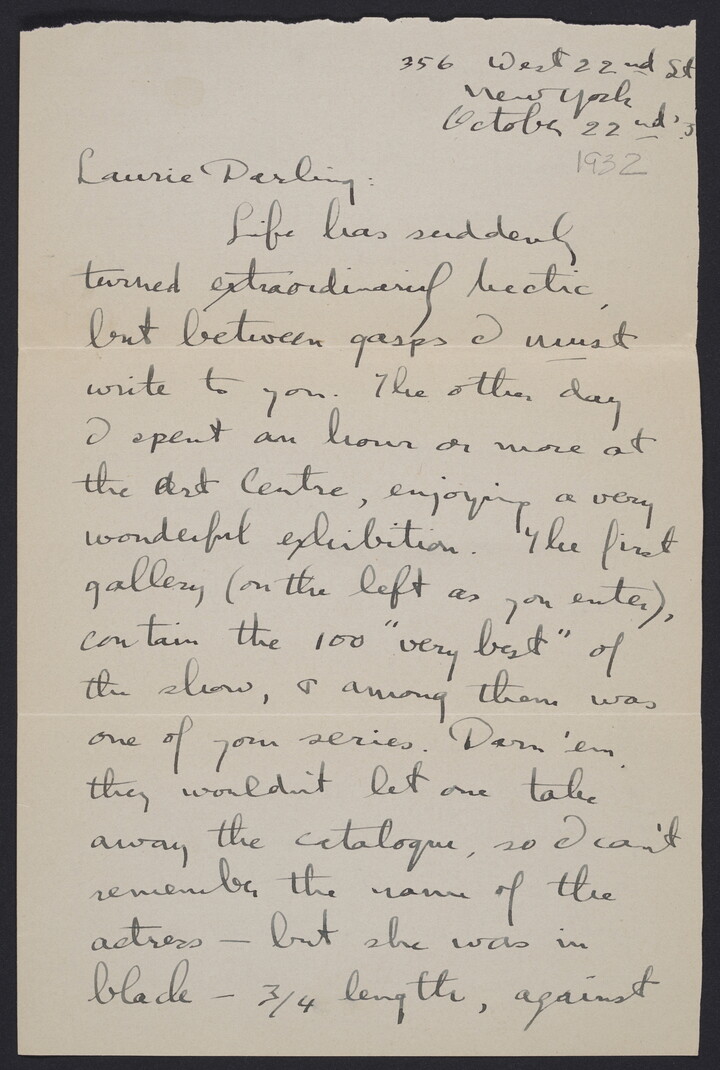 356 West 22nd St
New York
October 22nd '3
1932
Laurie Darling:
Life has suddenly
turned extraordinarily hectic,
but between gasps I must
write to you. The other day
I spent an hour or more at
the Art Centre, enjoying a very
wonderful exhibition. The first
gallery (on the left as you enter),
contain the 100 "very best" of
the show, & among them was
one of your series. Darn 'em,
they wouldn't let one take
away the catalogue, so I can't
remember the name of the
actress — but she was in
black — 3/4 length, against